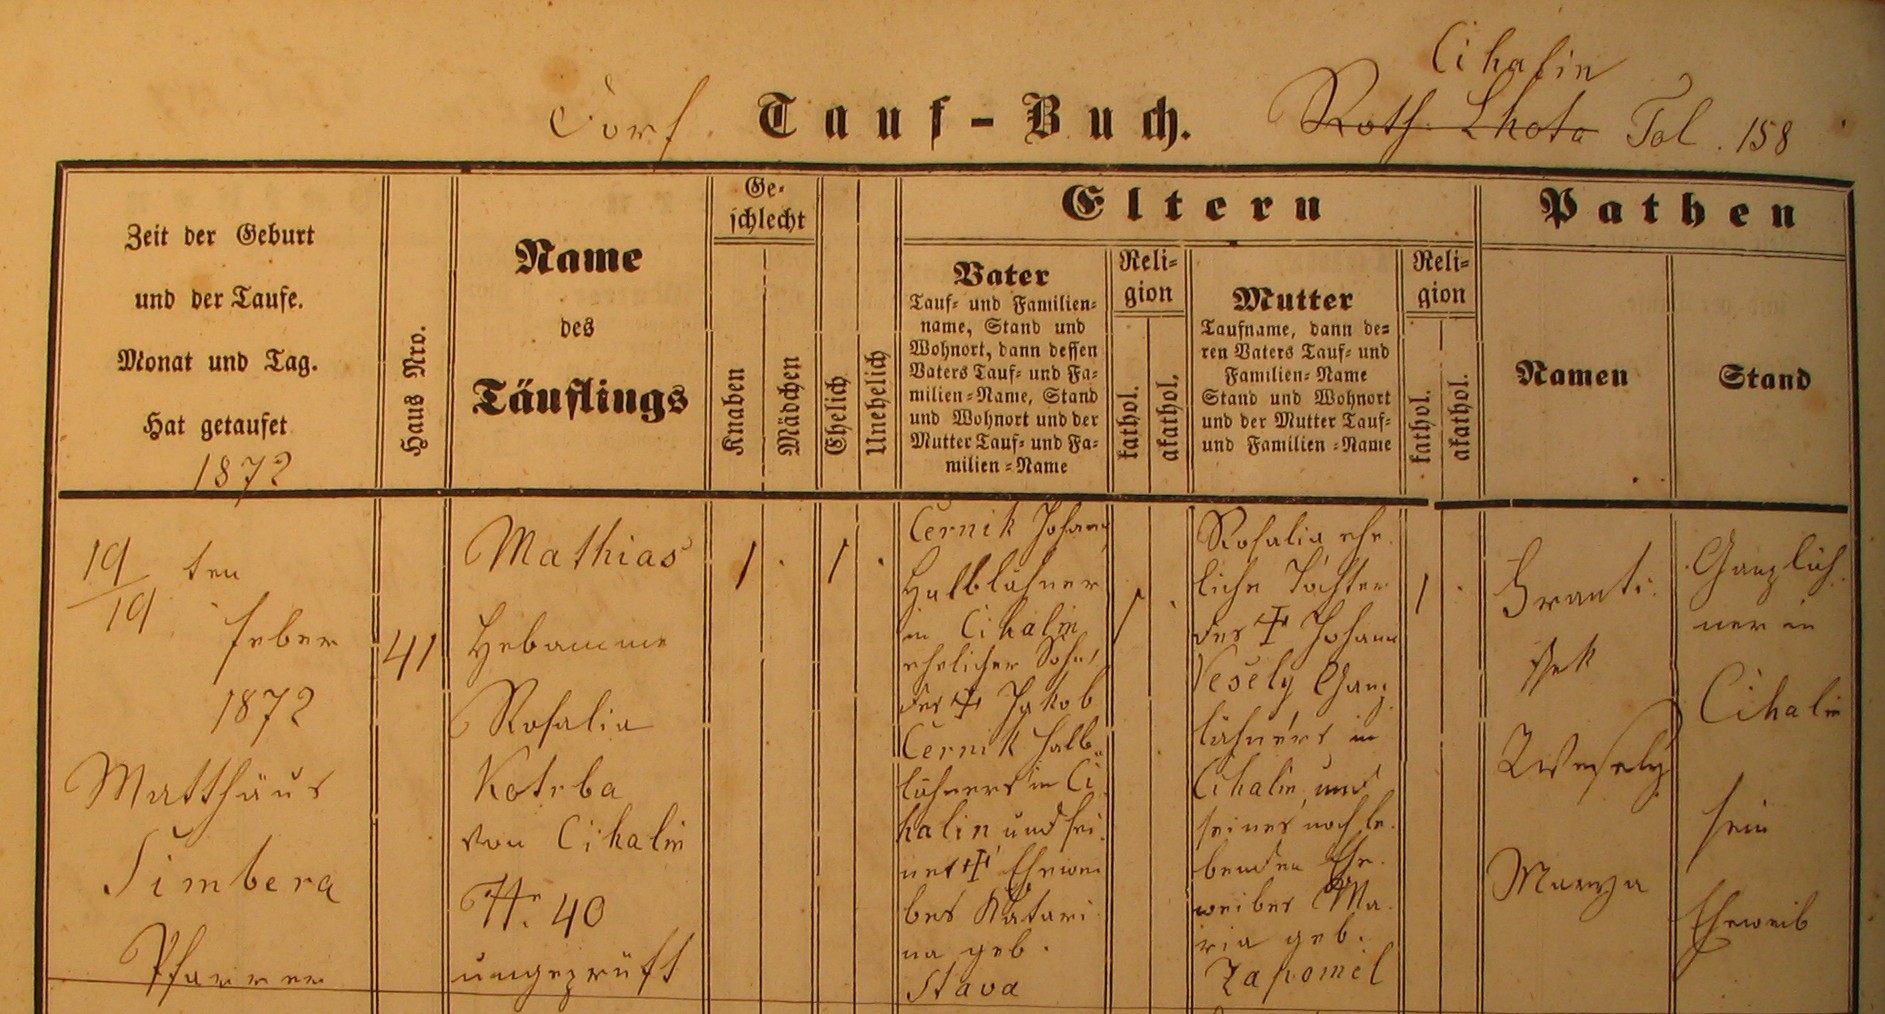 Cihalin
Dorf. Tauf-Buch. Roth. Lhota Fol. 158
Zeit der Geburt
und der Taufe.
Monat und Tag.
Hat getaufet
1872
Haus Nro.
Name
des
Täuflings
Ge-
schlecht
Knaben
Mädchen
Ehelich
Unehelich
Eltern
Vater
Tauf- und Familien-
name, Stand und
Wohnort, dann dessen
Vaters Tauf- und Fa-
milien-Name, Stand
und Wohnort und der
Mutter Tauf- und Fa-
milien-Name
Reli-
gion
kathol.
akathol.
Mutter
Taufname, dann de-
ren Vaters Tauf- und
Familien-Name
Stand und Wohnort
und der Mutter Tauf-
und Familien-Name
Reli-
gion
kathol.
akathol.
Pathen
Namen
Stand
19/19 ten
Feber
1872
Matthäus
Simbera
Pfarrer
41
Mathias
Hebamme
Rosalia
Kotrba
von Cihalin
N. 40
ungeprüft
1 .
1 .
Cernik Johann
Halblöhner
in Cihalin
ehelicher Sohn
des ✝ Jakob
Cernik Halb-
löhners in Ci
halin und sei
ner ✝ Ehewei
bes Katari
na geb.
Stava
1 .
Rosalia ehe.
liche Tochter
des ✝ Johann
Vesely Ganz
löhners in
Cihalin, und
seines noch le.
benden Ehe.
weibes Ma.
ria geb.
Zapomel
1 .
Franti.
ssek
Wessely
Marya
Ganzlöh.
ner in
Cihalin
sein
Eheweib